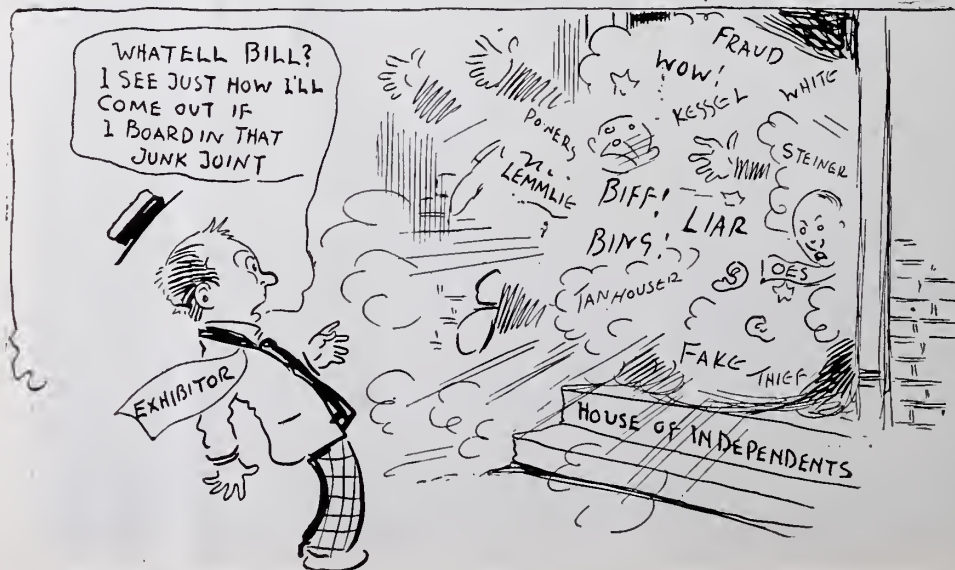 WHATELL BILL?
I SEE JUST HOW I'LL
COME OUT IF
I BOARD IN THAT
JUNK JOINT
EXHIBITOR
FRAUD
WOW!
WHITE
KESSEL
POWERS
STEINER
LEMMLIE
BIFF!
LIAR
BING!
OES
TANHOUSER
FAKE
THIEF
HOUSE OF INDEPENDENTS